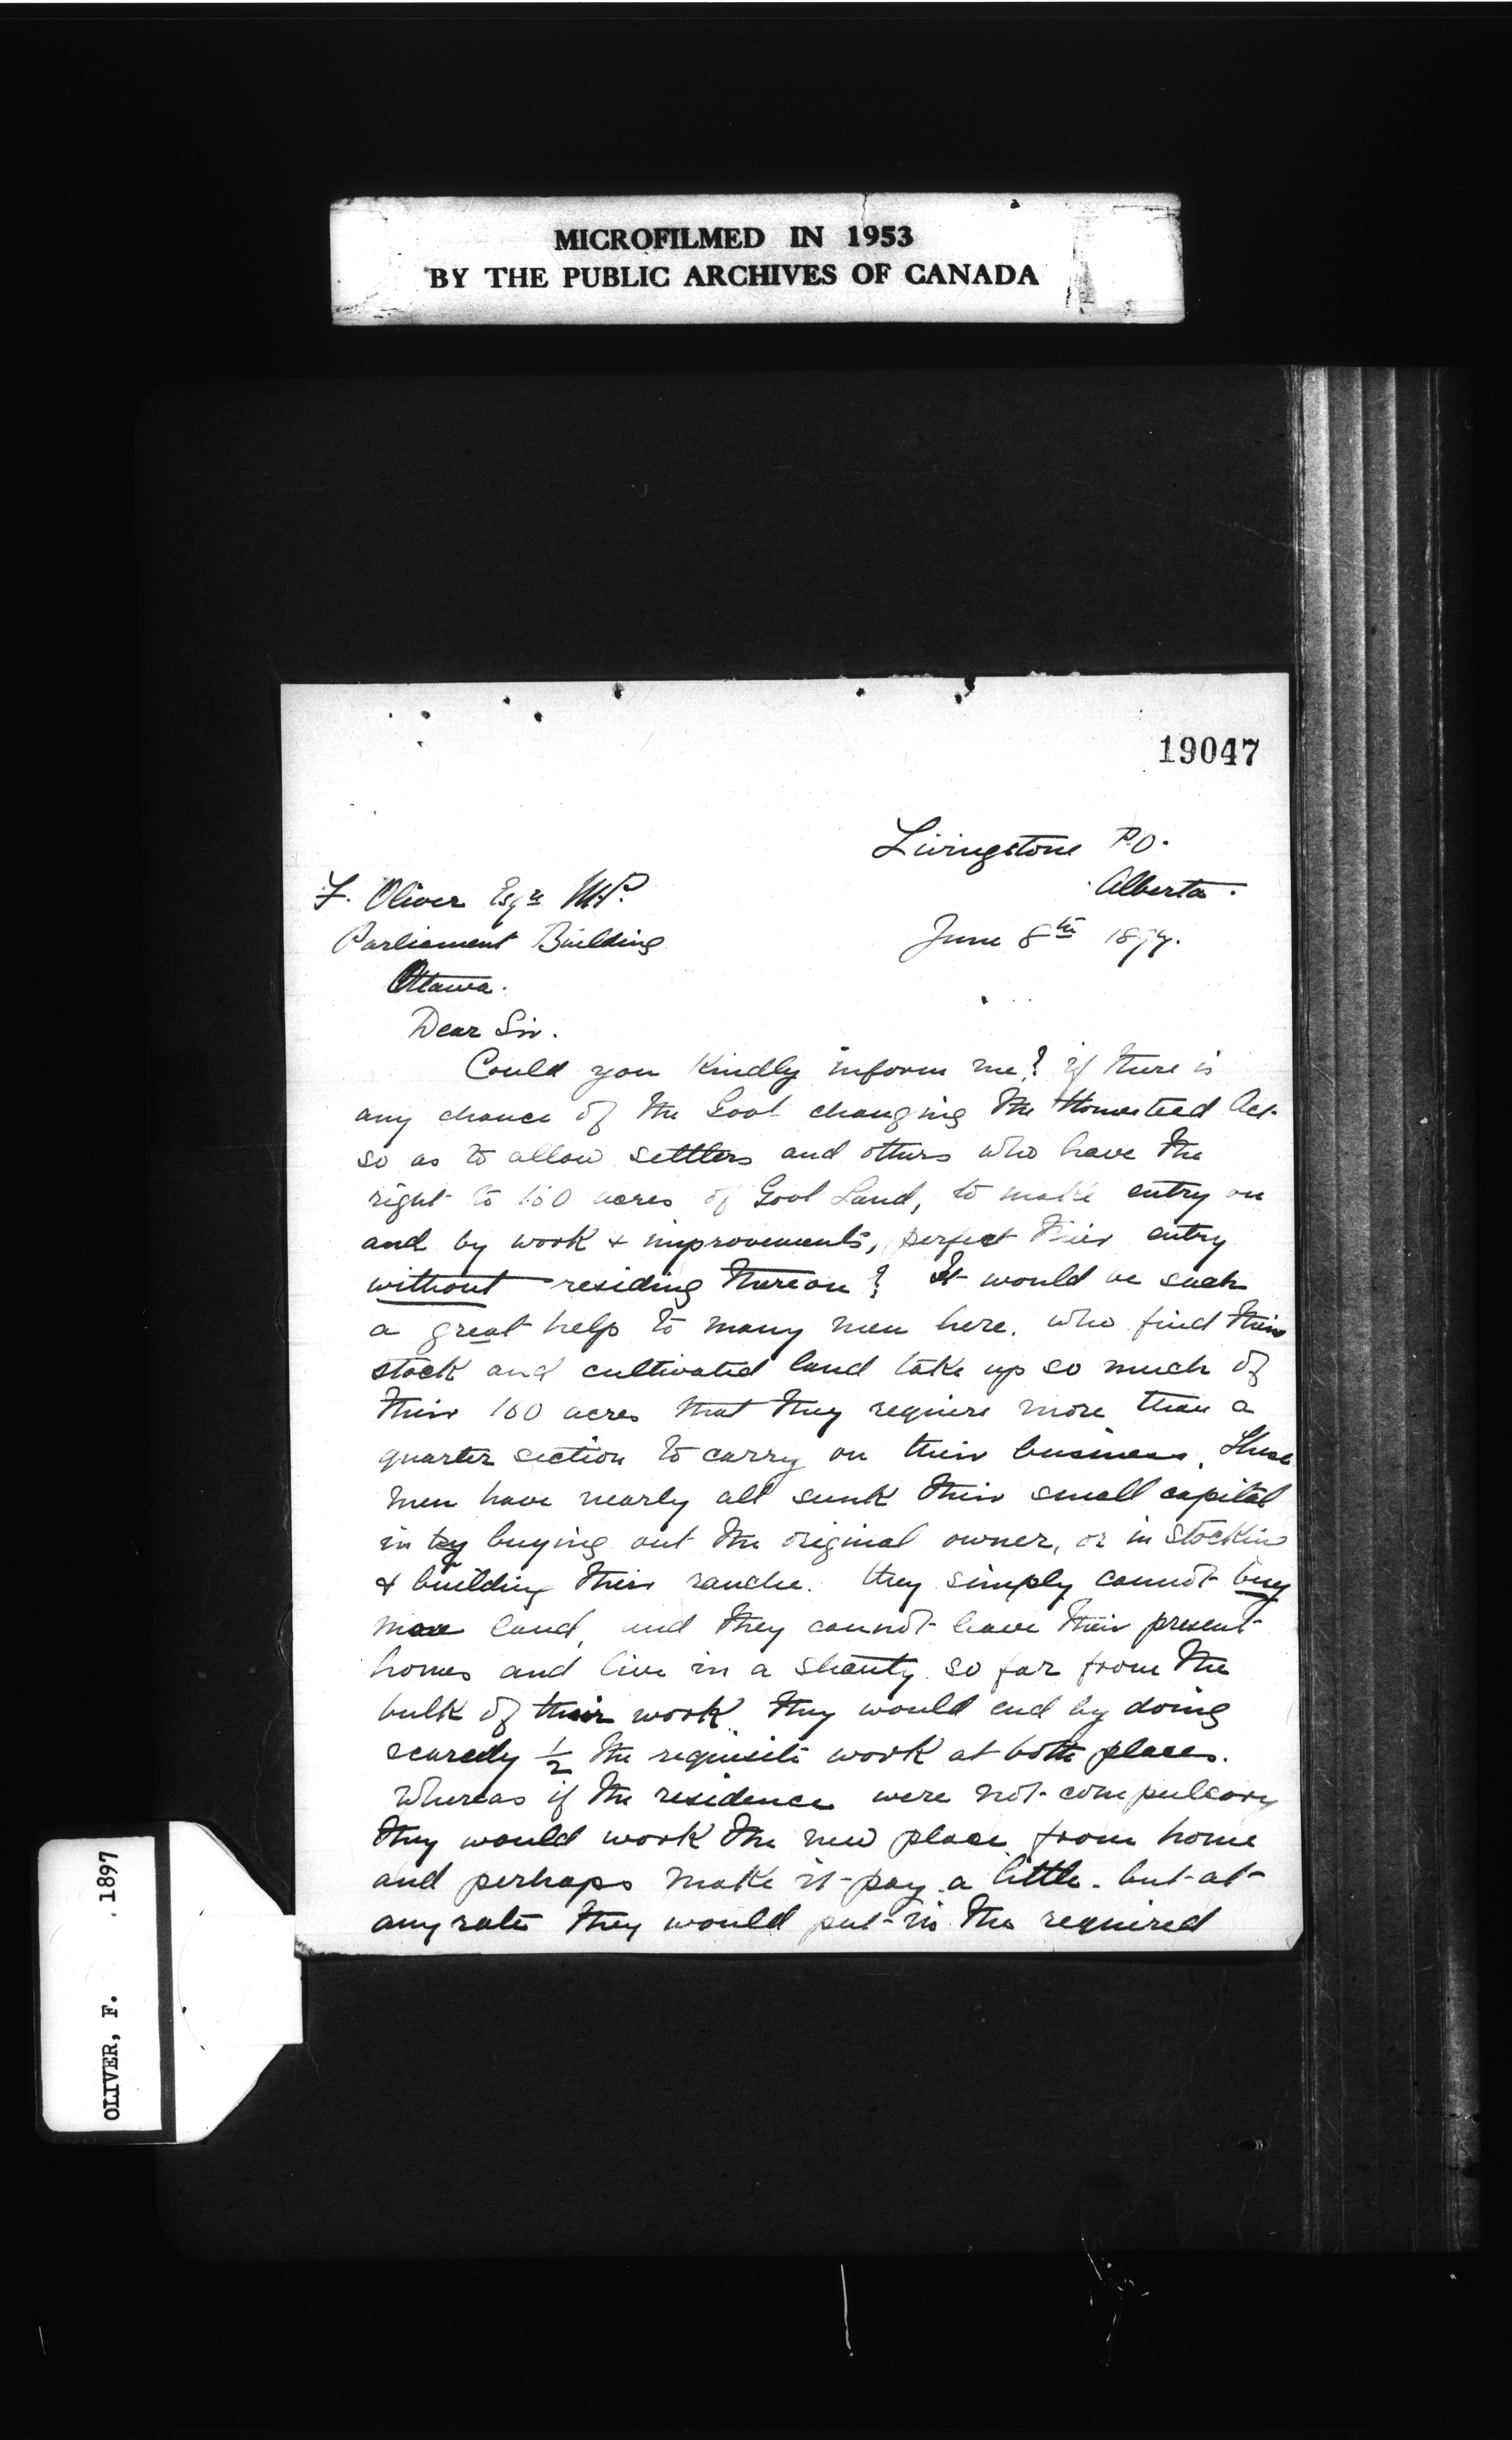 MICROFILMED IN 1953
BY THE PUBLIC ARCHIVES OF CANADA
19047
Livingstone P.O.
Alberta.
F. Oliver Esqre M.P.
Parliament Building
June 8th 1897.
Ottawa.
Dear Sir.
Could you kindly inform me? if there is
any chance of the Govt changing the Homestead Act
so as to allow settlers and others who have the
right to 160 acres of Govt Land, to make entry on
and by work & improvements, perfect their entry
without residing thereon? It would be such
a great help to many men here. who find their
stock and cultivated land take up so much of
their 160 acres that they require more than a
quarter section to carry on their business. These
men have nearly all sunk their small capital
in buying out the original owner, or in stocking
& building their ranche. they simply cannot buy
more land, and they cannot leave their present
homes and live in a shanty so far from the
bulk of their work. they would end by doing
scarcely 1/2 the requisite work at both places.
Whereas if the residence were not compulsory
they would work the new place from home
and perhaps make it pay a little. but at
any rate they would put in the required
OLIVER, F. 1897